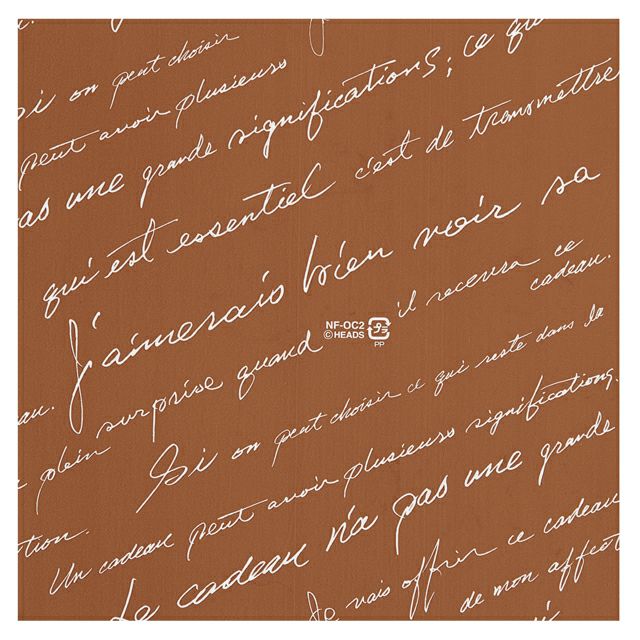 Si on peut choisir
peut avoir plusieurs
pas une grande significations; ce qu
qui est essentiel c'est de transmettre
J'aimerais bien voir sa
surprise quand il recevra ce
cadeau.
NF-OC2
©HEADS
プラ
PP
au.
plein
Si on peut choisir ce qui reste dans la
tion.
Un cadeau peut avoir plusieurs significations.
Le cadeau n'a pas une grande
Je vais offrir ce cadeau
de mon affect